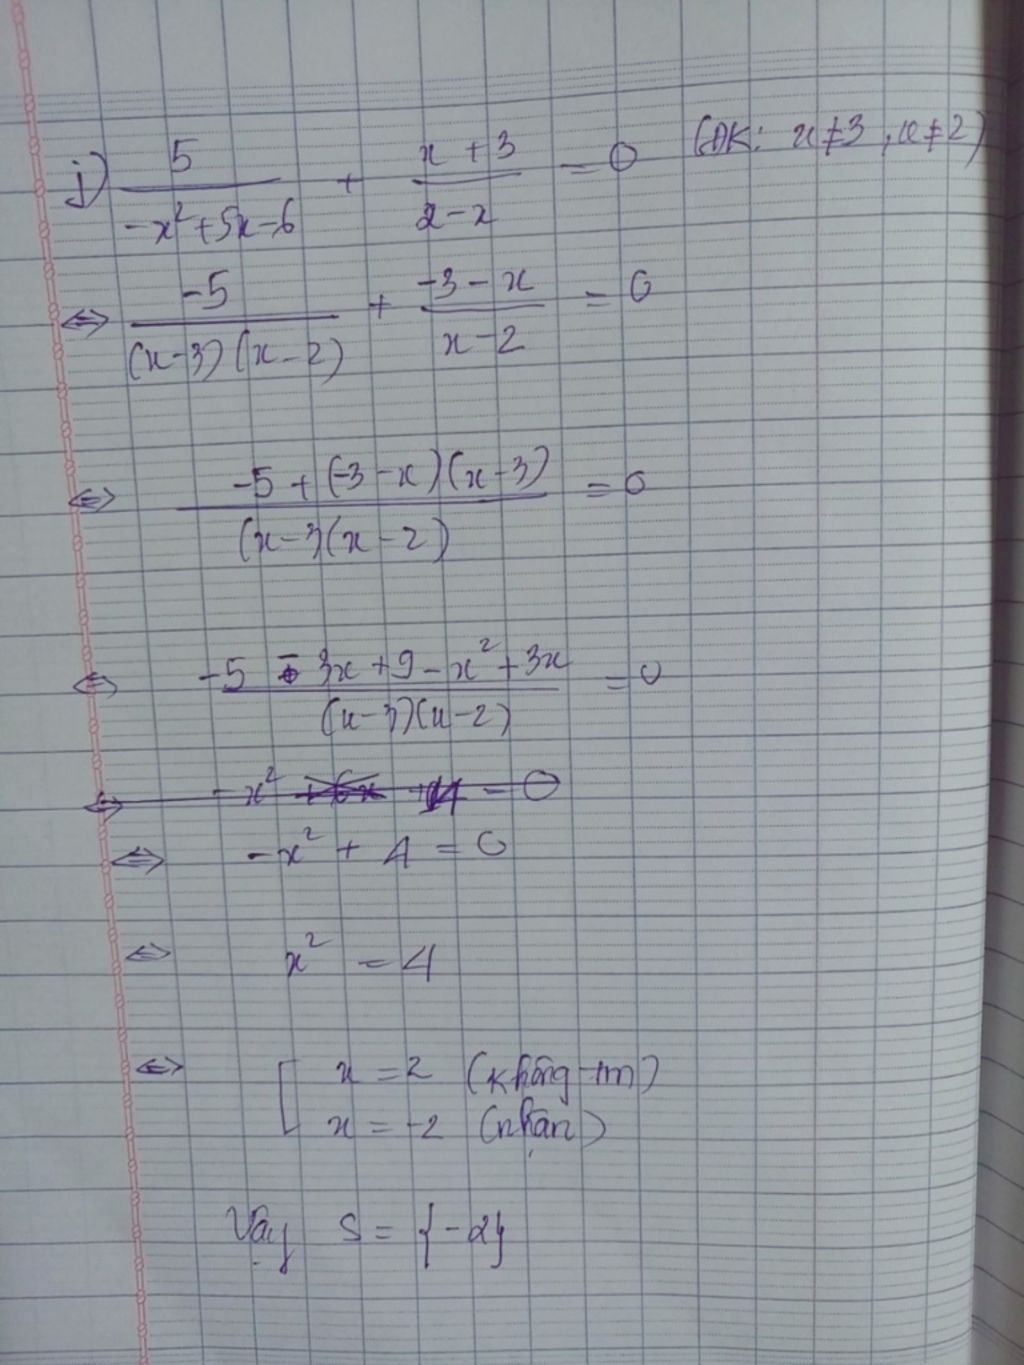 j) 5/(-x²+5x-6) + (x+3)/(2-x) = 0 (ĐK: x≠3, x≠2)
⇔ -5/((x-3)(x-2)) + (-3-x)/(x-2) = 0
⇔ (-5+(-3-x)(x-3))/((x-3)(x-2)) = 0
⇔ (-5-3x+9-x²+3x)/((x-3)(x-2)) = 0
⇔ -x² + 4 = 0
⇔ x² = 4
⇔ [ x = 2 (không tm)
x = -2 (nhận)
Vậy S = {-2}